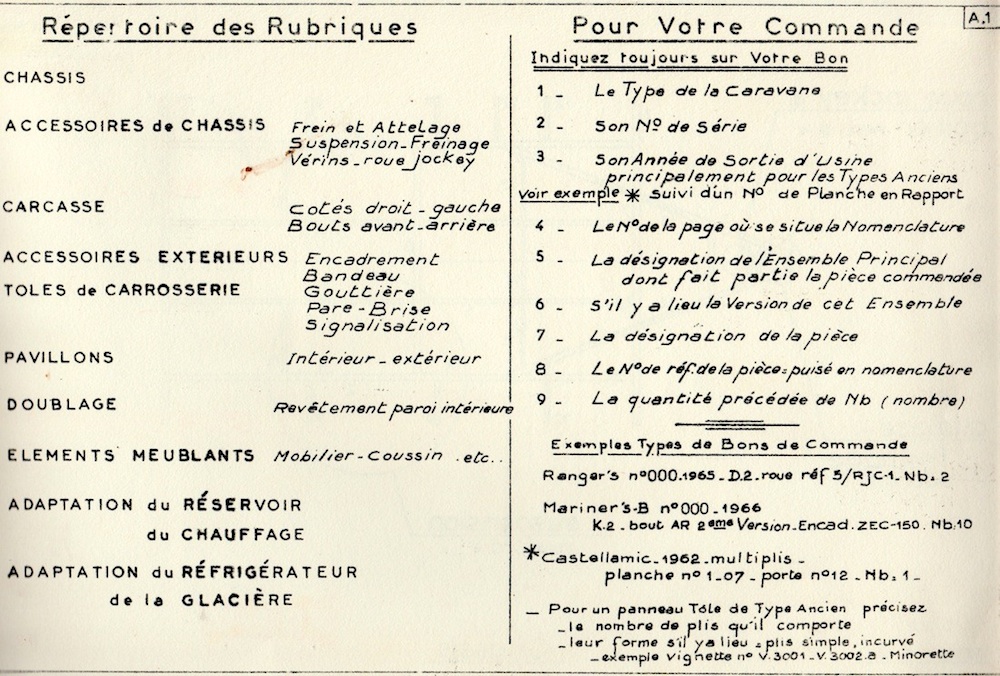 A.1
Répertoire des Rubriques
CHASSIS
ACCESSOIRES de CHASSIS Frein et Attelage
Suspension-Freinage
Vérins-roue jockey
CARCASSE cotés droit-gauche
Bouts avant-arrière
ACCESSOIRES EXTERIEURS Encadrement
Bandeau
TOLES de CARROSSERIE Gouttière
Pare-Brise
Signalisation
PAVILLONS Intérieur-extérieur
DOUBLAGE Revêtement paroi intérieure
ELEMENTS MEUBLANTS Mobilier-Coussin.etc..
ADAPTATION du RÉSERVOIR
du CHAUFFAGE
ADAPTATION du RÉFRIGÉRATEUR
de la GLACIÈRE
Pour Votre Commande
Indiquez toujours sur Votre Bon
1- Le Type de la Caravane
2- Son Nº de Série
3- Son Année de Sortie d'Usine
principalement pour les Types Anciens
voir exemple * suivi d'un Nº de Planche en Rapport
4- Le Nº de la page où se situe la Nomenclature
5- La désignation de l'Ensemble Principal
dont fait partie la pièce commendée
6- S'il y a lieu la Version de cet Ensemble
7- La désignation de la pièce
8- Le Nº de réf. de la pièce=puisé en nomenclature
9- La quantité précédée de Nb (nombre)
Exemples Types de Bons de Commande
Ranger's nº000.1965-D.2-roue réf 5/RJC-1-Nb:2
Mariner's-B nº000-1966
K.2-bout AR 2eme Version-Encad.ZEC-150.Nb:10
*Castellamic-1962-multiplis-
planche nº1-07-porte nº12-Nb:1-
- Pour un panneau Tôle de Type Ancien précisez
-le nombre de plis qu'il comporte
-leur forme s'il y a lieu=plis simple, incurvé
-exemple Vignette nº V.3001-V.3002.a-Minorette